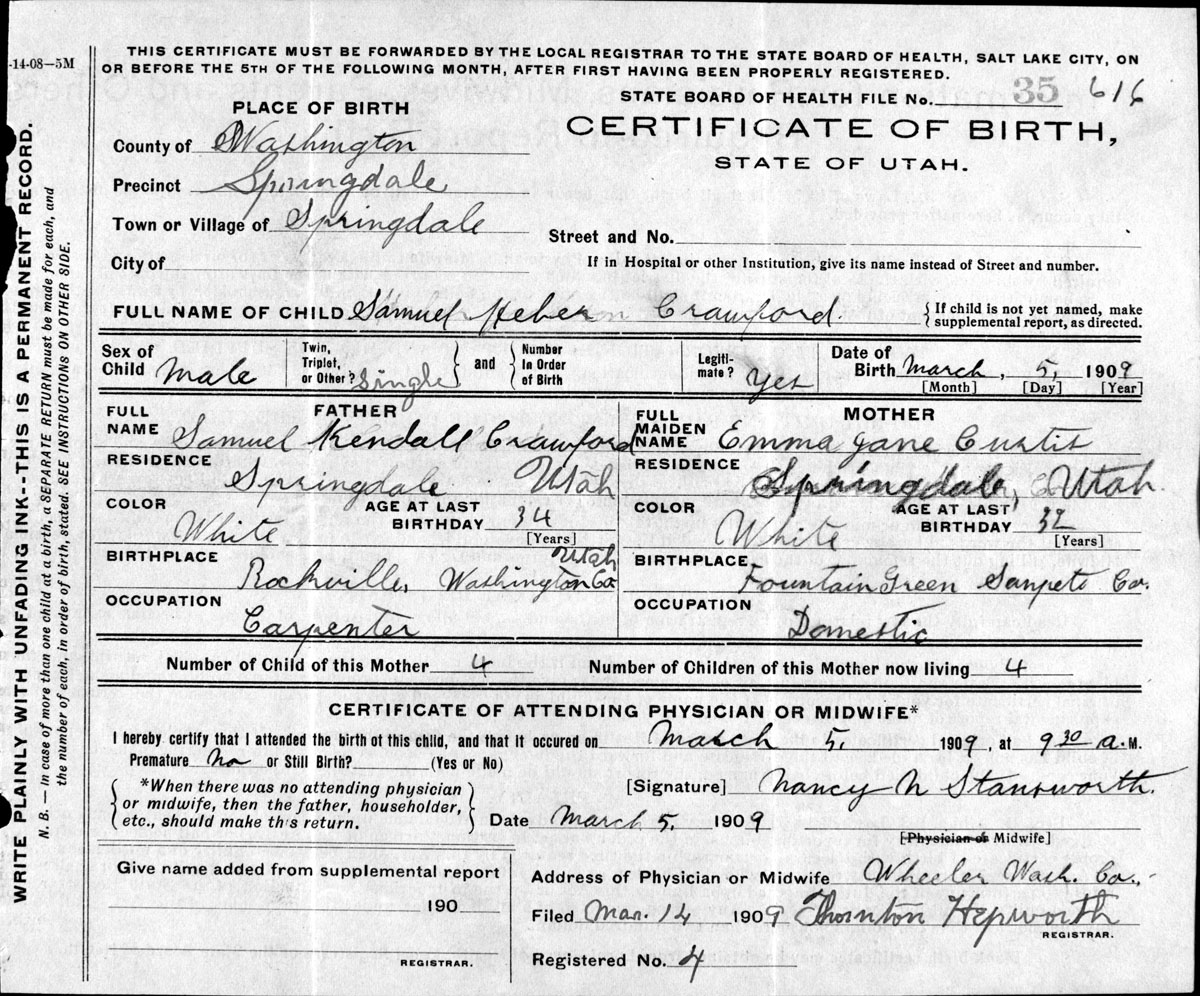 -14-08—5M
THIS CERTIFICATE MUST BE FORWARDED BY THE LOCAL REGISTRAR TO THE STATE BOARD OF HEALTH, SALT LAKE CITY, ON
OR BEFORE THE 5TH OF THE FOLLOWING MONTH, AFTER FIRST HAVING BEEN PROPERLY REGISTERED.
STATE BOARD OF HEALTH FILE No. 35 616
CERTIFICATE OF BIRTH,
STATE OF UTAH.
PLACE OF BIRTH
County of Washington
Precinct Springdale
Town or Village of Springdale
City of
Street and No.
If in Hospital or other Institution, give its name instead of Street and number.
FULL NAME OF CHILD Samuel Heber Crawford. {If child is not yet named, make
supplemental report, as directed.
Sex of Child Male
Twin, Triplet, or Other? Single and Number In Order of Birth
Legiti-mate? Yes
Date of Birth March, 5, 1909
[Month] [Day] [Year]
FATHER
FULL NAME Samuel Kendall Crawford
RESIDENCE Springdale Utah
COLOR White AGE AT LAST BIRTHDAY 34
[Years]
BIRTHPLACE Rockville, Washington Co. Utah
OCCUPATION Carpenter
MOTHER
FULL MAIDEN NAME Emma Jane Curtis
RESIDENCE Springdale, Utah
COLOR White AGE AT LAST BIRTHDAY 32
[Years]
BIRTHPLACE Fountain Green Sanpete Co.
OCCUPATION Domestic
Number of Child of this Mother 4 Number of Children of this Mother now living 4
CERTIFICATE OF ATTENDING PHYSICIAN OR MIDWIFE*
I hereby certify that I attended the birth of this child, and that it occured on March 5, 1909, at 9 30 a.M.
Premature No or Still Birth? (Yes or No)
*When there was no attending physician
or midwife, then the father, householder,
etc., should make this return.
[Signature] Nancy N Stanworth.
Date March 5, 1909
[Physician or Midwife]
Give name added from supplemental report
190
REGISTRAR.
Address of Physician or Midwife Wheeler Wash. Co.,
Filed Mar. 14 1909 Thornton Hepworth
REGISTRAR.
Registered No. 4
WRITE PLAINLY WITH UNFADING INK--THIS IS A PERMANENT RECORD.
N. B.—In case of more than one child at a birth, a SEPARATE RETURN must be made for each, and
the number of each, in order of birth, stated. SEE INSTRUCTIONS ON OTHER SIDE.